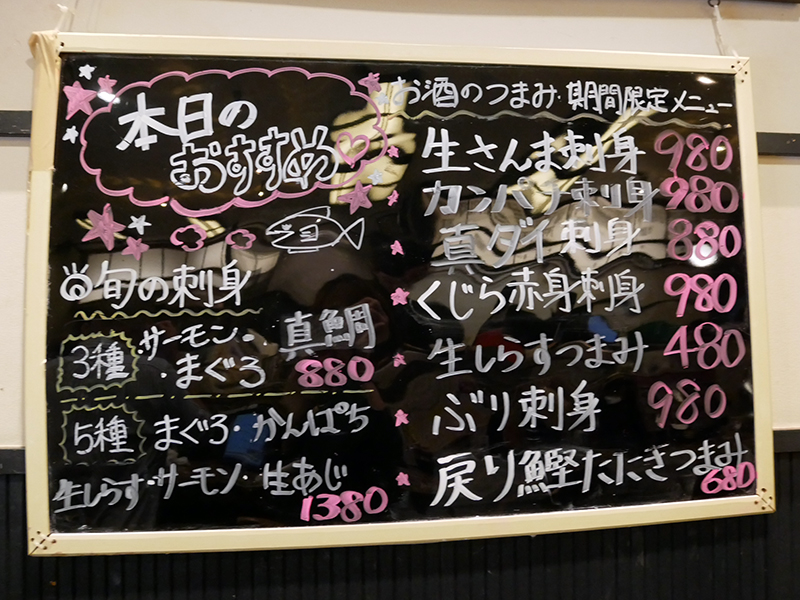 本日の
おすすめ
旬の刺身
3種 サーモン・真鯛
・まぐろ 880
5種 まぐろ・かんぱち
生しらす・サーモン・生あじ
1380
お酒のつまみ・期間限定メニュー
生さんま刺身 980
カンパチ刺身 980
真ダイ刺身 880
くじら赤身刺身 980
生しらすつまみ 480
ぶり刺身 980
戻り鰹たたきつまみ 680